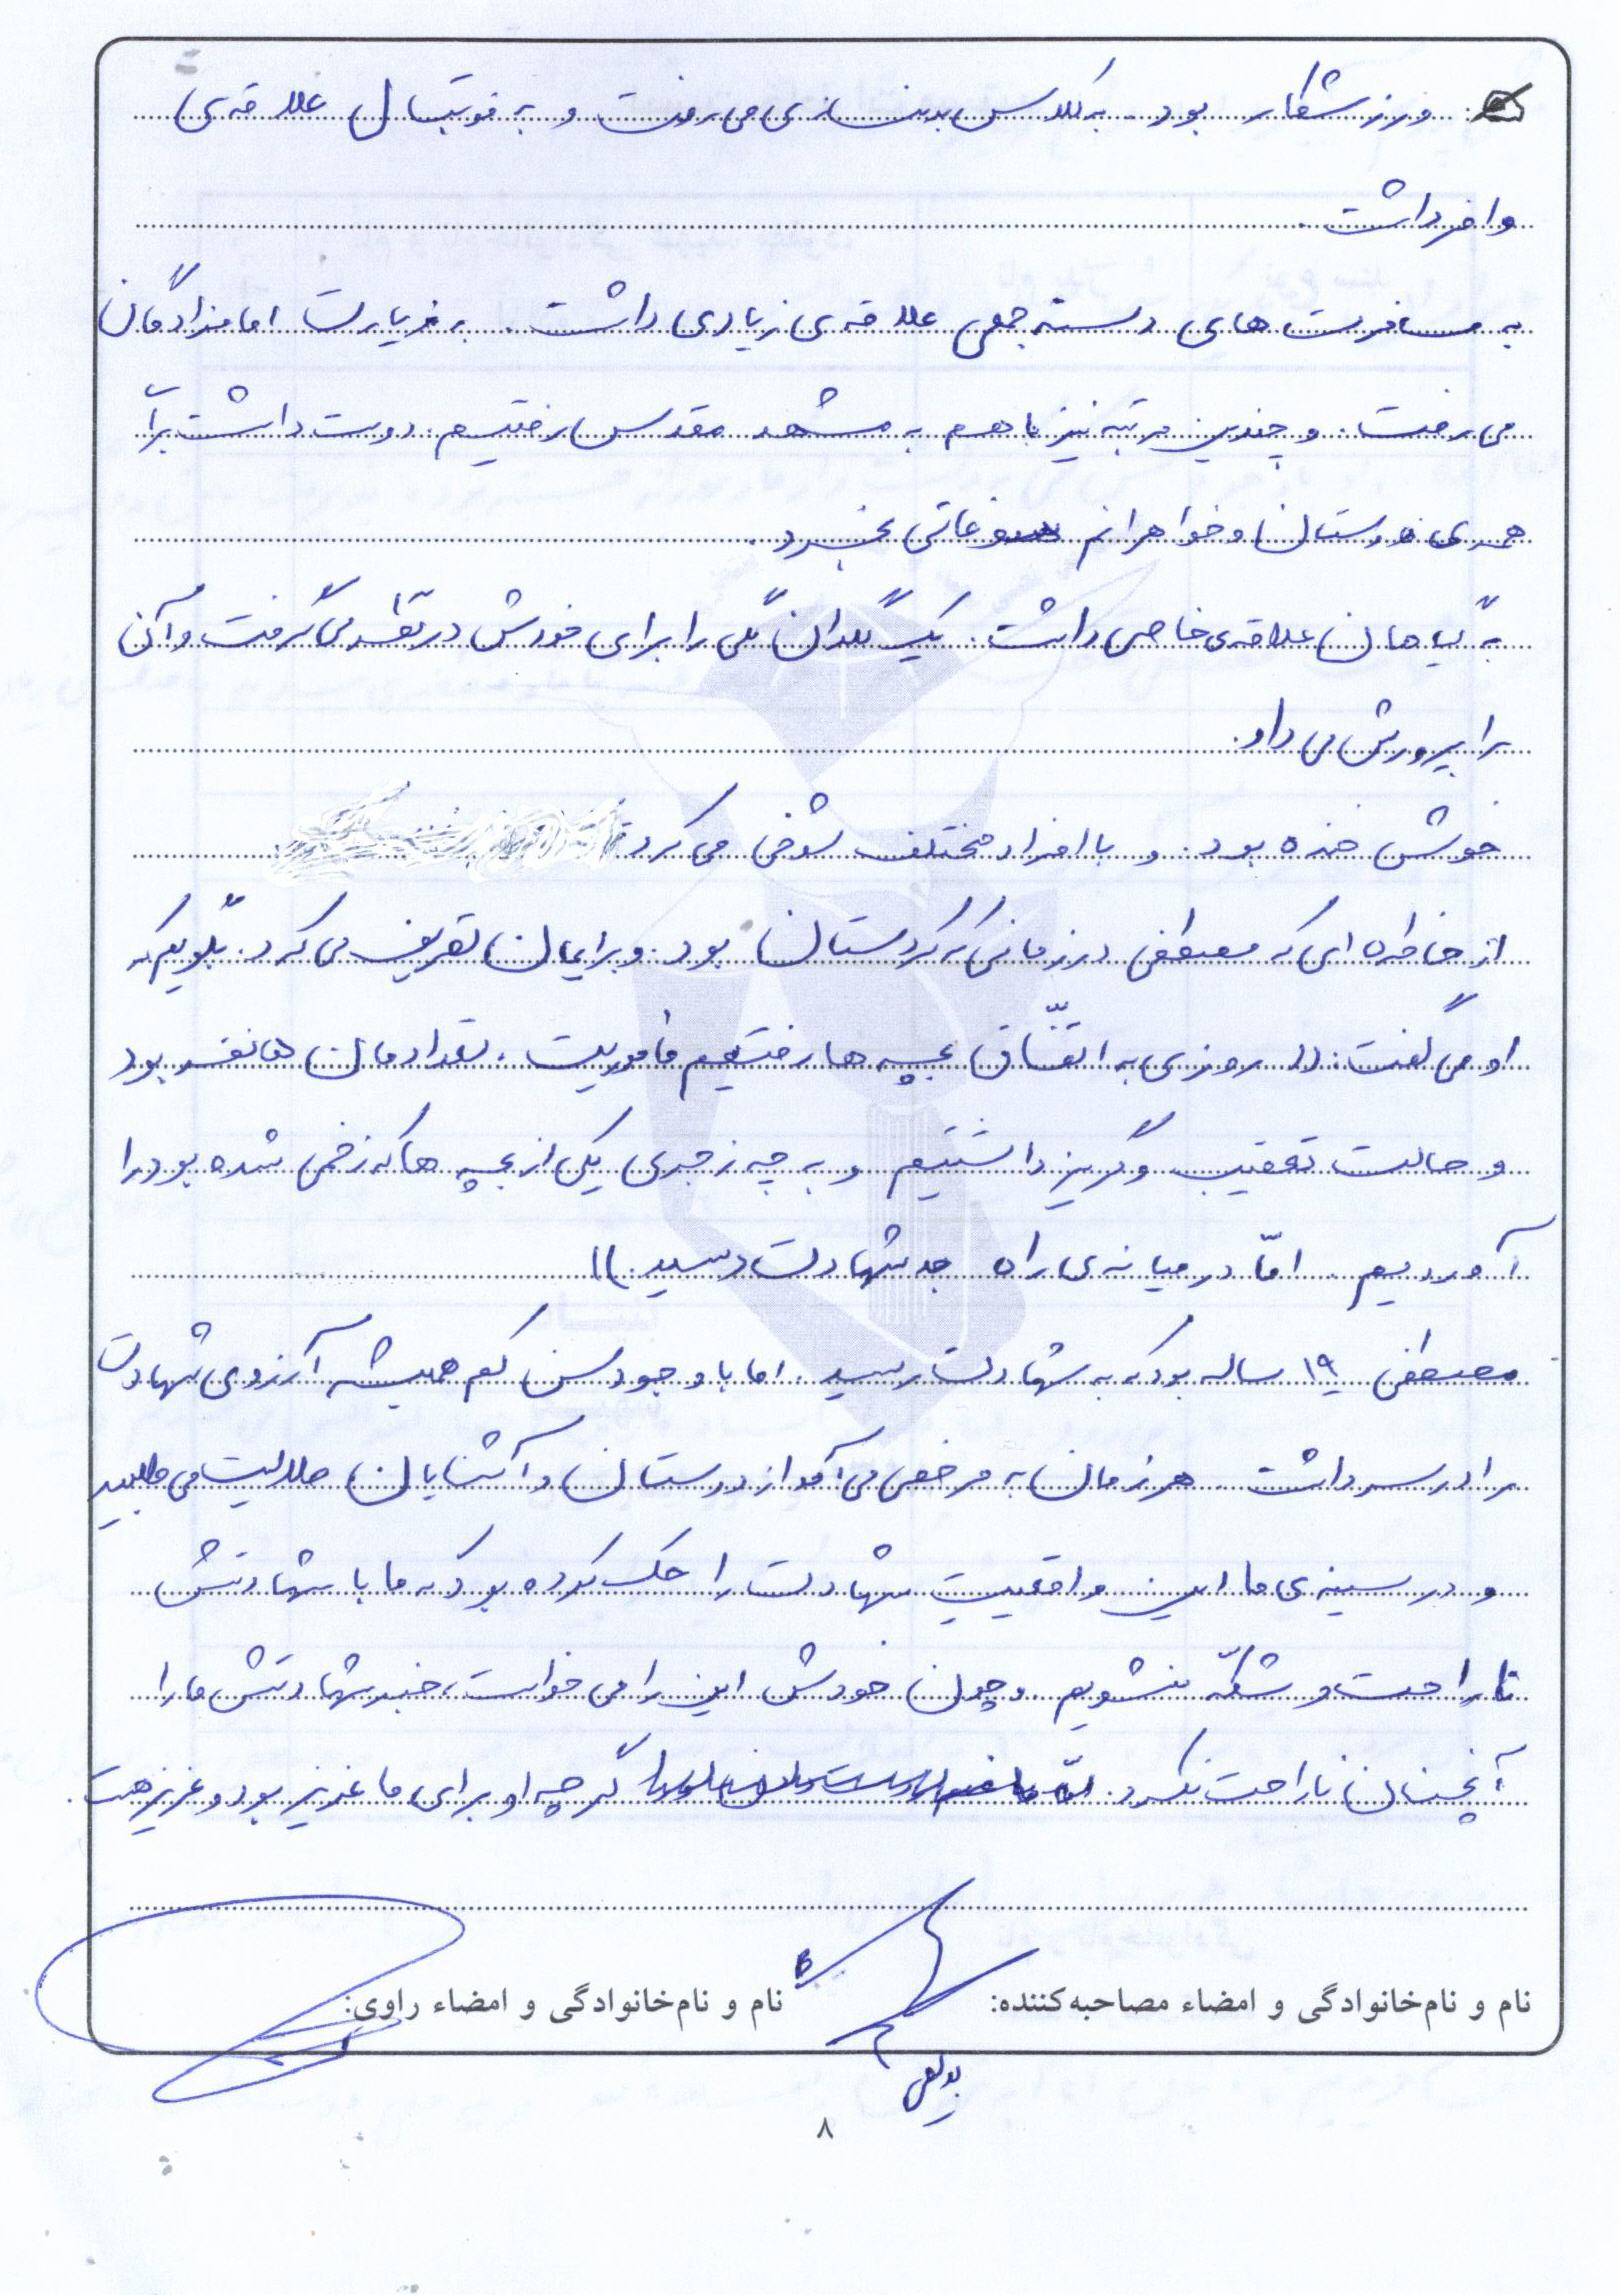 ورزشکار بود. به کلاس بدنسازی می رفت و به فوتبال علاقه ی
وافر داشت.
به مسافرت های دسته جمعی علاقه ی زیادی داشت. به زیارت امامزادگان
می رفت. و چندین مرتبه نیز با هم به مشهد مقدس رفتیم. دوست داشت برای
همه ی دوستان و خواهرانم سوغاتی بخرد.
به گیاهان علاقه ی خاصی داشت. یک گلدان گلی را برای خودش در نظر می گرفت و آن
را پرورش می داد.
خوش خنده بود. و با افراد مختلف شوخی می کرد
از خاطره ای که مصطفی در زمانی که کردستان بود. و برایمان تعریف می کرد. بگویم که
او می گفت: (( روزی به اتفّاق بچه ها رفتیم مأموریت. تعدادمان نفر بود
و حالت تعقیب و گریز داشتیم و به چه زجری یکی از بچه ها که زخمی شده بود را
آوردیم. امّا در میانه ی راه به شهادت رسید. ))
مصطفی ۱۹ ساله بود که به شهادت رسید. اما با وجود سن کم همیشه آرزوی شهادت
را در سر داشت. هر زمان به مرخصی می آمد از دوستان و آشنایان حلالیت می طلبید
و در سینه ی ما این واقعیت شهادت را حک کرده بود که ما با شهادتش
ناراحت و شکّه نشویم. و چون خودش این را می خواست، خبر شهادتش ما را
آنچنان ناراحت نکرد. گرچه او برای ما عزیز بود و عزیز هست.
نام و نام‌خانوادگی و امضاء مصاحبه‌کننده: نام و نام‌خانوادگی و امضاء راوی:
۸